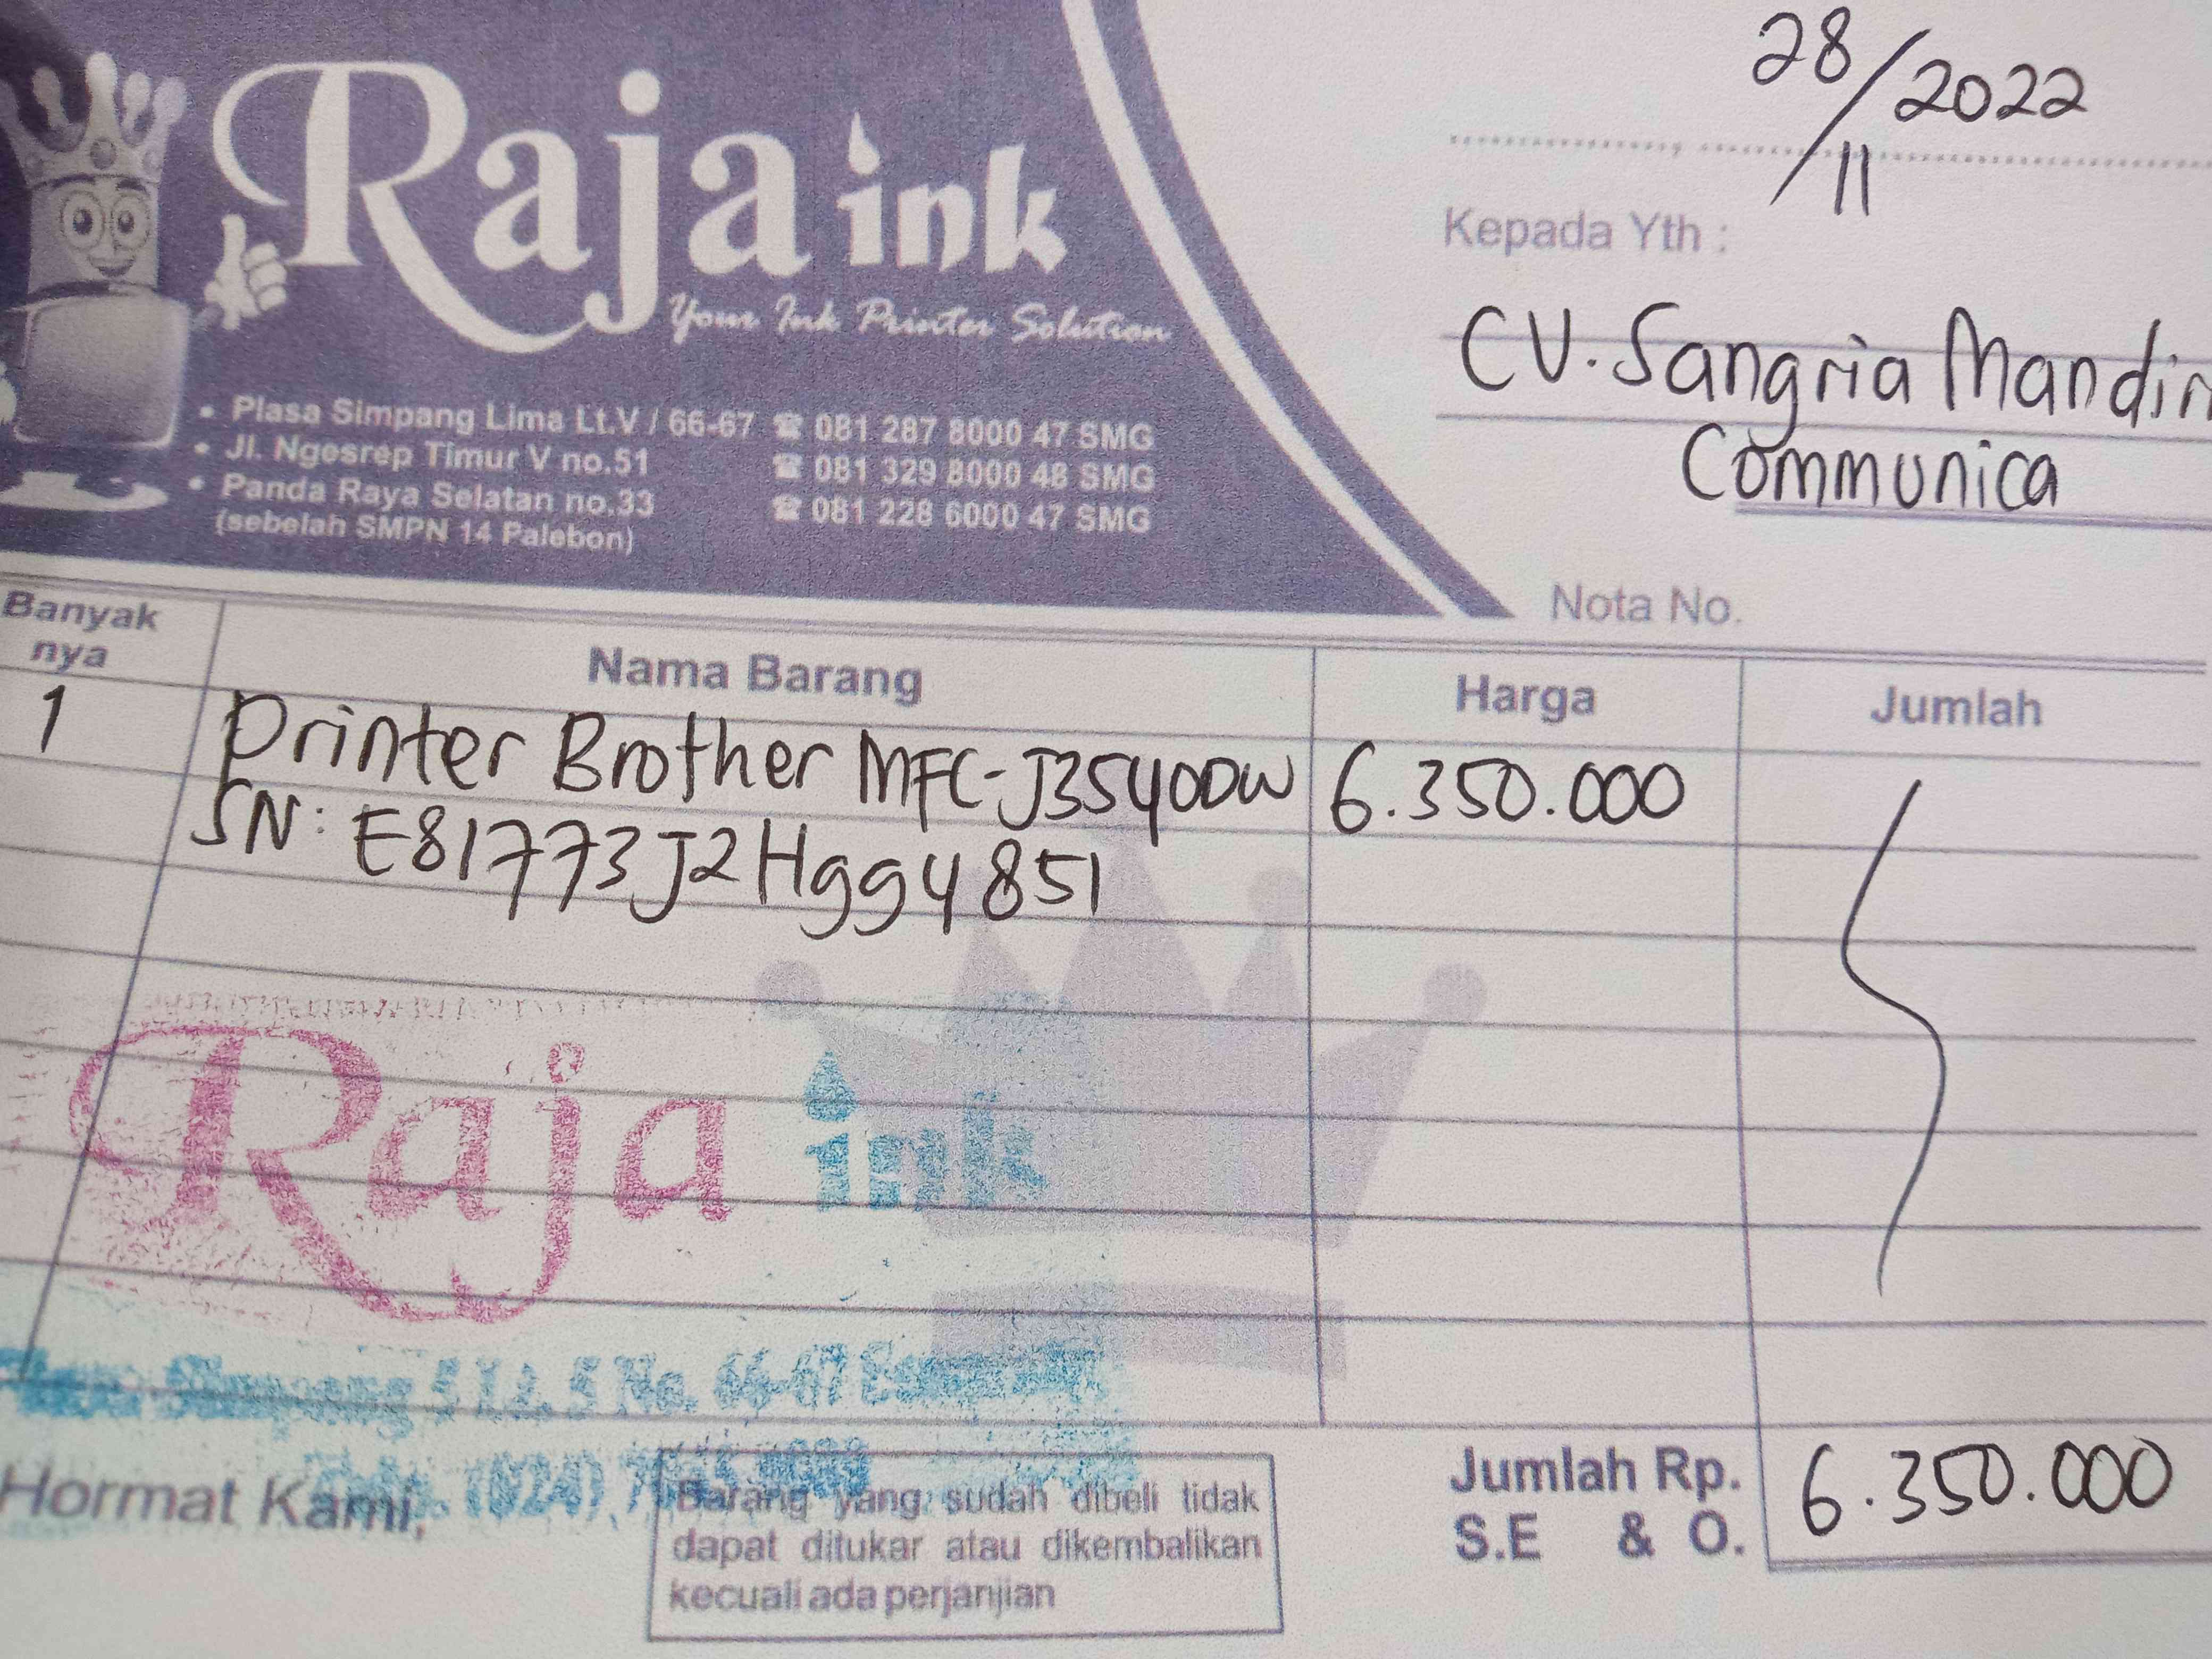 Raja ink
Your Ink Printer Solution
• Plasa Simpang Lima Lt.V / 66-67 ☎ 081 287 8000 47 SMG
• Jl. Ngesrep Timur V no.51 ☎ 081 329 8000 48 SMG
• Panda Raya Selatan no.33 ☎ 081 228 6000 47 SMG
(sebelah SMPN 14 Palebon)
28/11/2022
Kepada Yth :
CV. Sangria Mandiri
Communica
Nota No.
Banyak nya Nama Barang Harga Jumlah
1 Printer Brother MFC-J3540DW 6.350.000
SN: E81773J2Hgg4851
Raja ink
Simpang 5 Lt. 5 No. 66-67
(024)
Hormat Kami,
Barang yang sudah dibeli tidak
dapat ditukar atau dikembalikan
kecuali ada perjanjian
Jumlah Rp. 6.350.000
S.E & O.